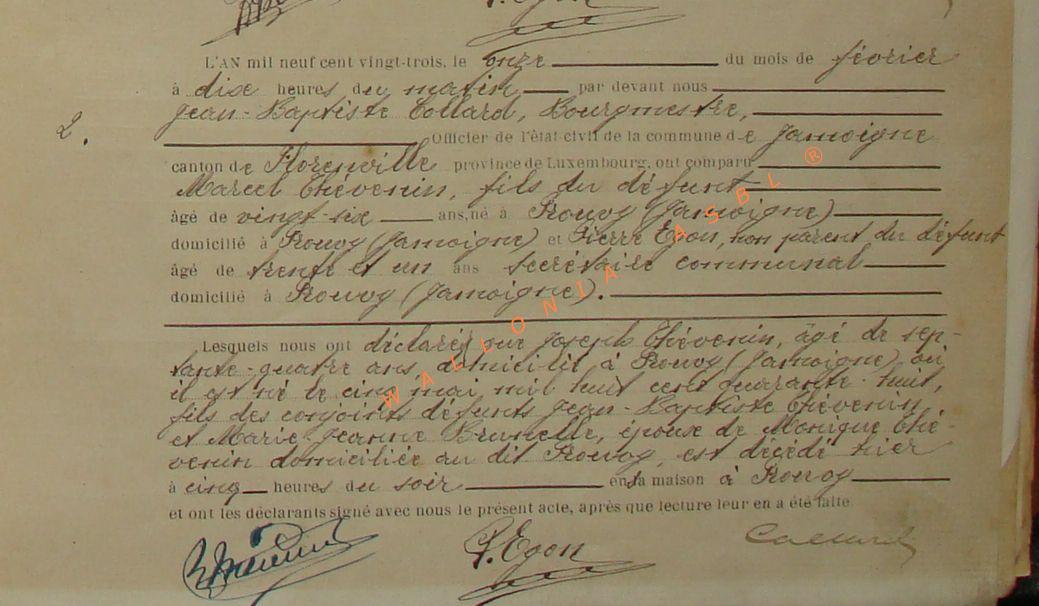 L'AN mil neuf cent vingt-trois, le onze du mois de février
à dix heures du matin par devant nous
Jean-Baptiste Collard, Bourgmestre,
2.
Officier de l'état civil de la commune de Jamoigne
canton de Florenville province de Luxembourg, ont comparu
Marcel Thévenin, fils du défunt
âgé de vingt-six ans, né à Prouvy (Jamoigne)
domicilié à Prouvy (Jamoigne) et Pierre Egon, non parent du défunt
âgé de trente et un ans secrétaire communal
domicilié à Prouvy (Jamoigne).
Lesquels nous ont déclaré que Joseph Thévenin, âgé de sep-
tante-quatre ans, domicilié à Prouvy (Jamoigne) où
il est né le cinq mai mil huit cent quarante-huit,
fils des conjoints défunts Jean-Baptiste Thévenin
et Marie-Jeanne Brunelle, époux de Monique Thé-
venin domiciliée au dit Prouvy, est décédé hier
à cinq heures du soir en sa maison à Prouvy
et ont les déclarants signé avec nous le présent acte, après que lecture leur en a été faite
P. Egon
Collard
WALLONIA ASBL ®